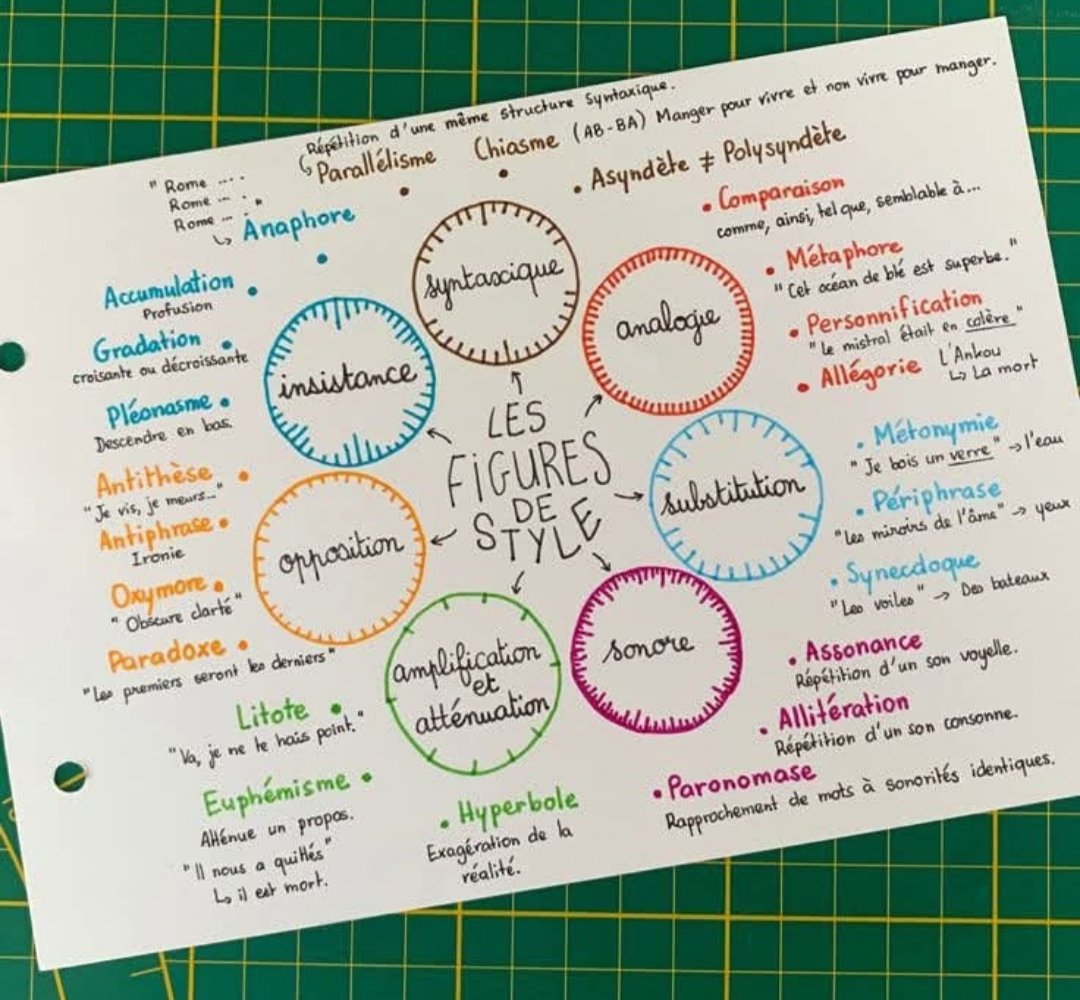 LES
FIGURES
DE
STYLE
syntaxique
Répétition d'une même structure syntaxique.
↳ Parallélisme
Chiasme (AB-BA) Manger pour vivre et non vivre pour manger.
• Asyndète ≠ Polysyndète
analogie
• Comparaison
comme, ainsi, tel que, semblable à...
• Métaphore
"Cet océan de blé est superbe."
• Personnification
"Le mistral était en colère"
• Allégorie L'Ankou
↳ La mort
substitution
• Métonymie
"Je bois un verre" → l'eau
• Périphrase
"Les miroirs de l'âme" → yeux
• Synecdoque
"Les voiles" → Des bateaux
sonore
• Assonance
Répétition d'un son voyelle.
• Allitération
Répétition d'un son consonne.
• Paronomase
Rapprochement de mots à sonorités identiques.
amplification
et
atténuation
• Hyperbole
Exagération de la
réalité.
Euphémisme •
Atténue un propos.
"Il nous a quittés"
↳ il est mort.
Litote •
"Va, je ne te hais point."
opposition
Antithèse •
"Je vis, je meurs..."
Antiphrase •
Ironie
Oxymore •
"Obscure clarté"
Paradoxe •
"Les premiers seront les derniers"
insistance
"Rome ....
Rome ....
Rome ... "
↳ Anaphore
Accumulation •
Profusion
Gradation •
croisante ou décroissante
Pléonasme •
Descendre en bas.